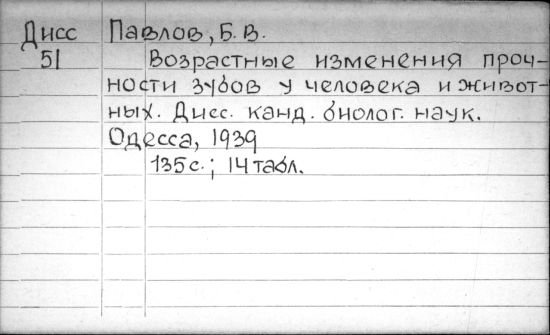 Дисс Павлов, Б. В.
51 Возрастные изменения проч-
ности зубов у человека и живот-
ных. Дисс. канд. биолог. наук.
Одесса, 1939
135 с.; 14 табл.